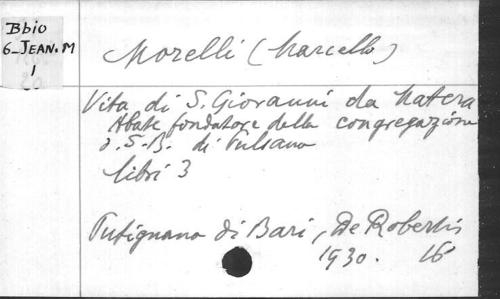 Bbio
6_JEAN.M
1
Morelli (Marcello)
Vita di S. Giovanni da Matera
Abate fondatore della congregazione
d. S. B. di Pulsano
libri 3
Putignano di Bari, De Robertis
1930. 16°